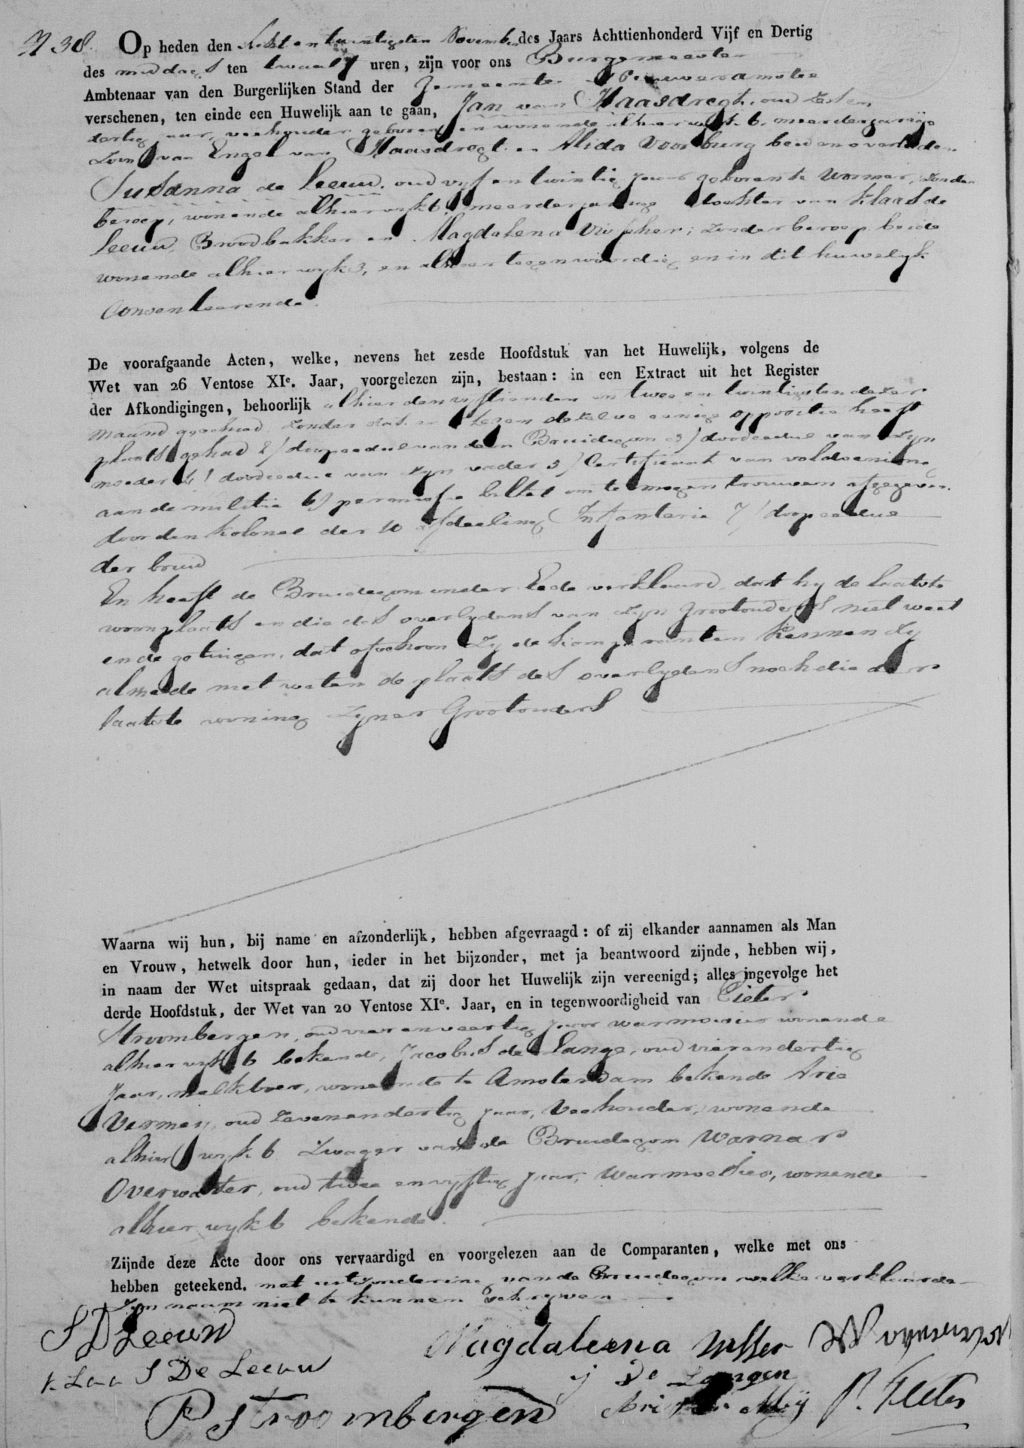 N 38. Op heden den Achtentwintigsten November des Jaars Achttienhonderd Vijf en Dertig
des middags ten twaalf uren, zijn voor ons Burgemeester
Ambtenaar van den Burgerlijken Stand der Gemeente Nieuweramstel
verschenen, ten einde een Huwelijk aan te gaan, Jan van Haasdregt, oud zesen
dertig jaar, veehouder geboren en wonende alhier wijk 6, meerderjarige
Zoon van Engel van Haasdregt en Alida Voorburg beiden overleden
Susanna de Leeuw, oud vijf en twintig jaar geboren te Wormer, zonder
beroep, wonende alhier wijk 6, meerderjarige dochter van Klaas de
Leeuw, Broodbakker en Magdalena Visscher, zonder beroep beide
wonende alhier wijk 3, en alhier tegenwoordig en in dit huwelijk
Consenteerende.
De voorafgaande Acten, welke, nevens het zesde Hoofdstuk van het Huwelijk, volgens de
Wet van 26 Ventose XIe. Jaar, voorgelezen zijn, bestaan: in een Extract uit het Register
der Afkondigingen, behoorlijk alhier den vijftienden en twee en twintigsten dezer
maand geschied, zonder dat er tegen dezelve eenige oppositie heeft
plaats gehad 2/ doopcedul van den Bruidegom 3/ doodcedul van zijn
moeder 4/ doodcedul van zijn vader 5/ Certificaat van voldoening
aan de militie 6/ permissie billet om te mogen trouwen afgegeven
door den Kolonel der 10 afdeeling Infanterie 7/ doopcedul
der bruid
En heeft de Bruidegom onder Eede verklaard dat hij de laatste
woonplaats en die des overlydens van zyn Grootouders niet weet
en de getuigen, dat ofschoon zy de Komparanten kennen zy
almede niet weten de plaats des overlydens noch die der
laatste woning zyner Grootouders
Waarna wij hun, bij name en afzonderlijk, hebben afgevraagd: of zij elkander aannamen als Man
en Vrouw, hetwelk door hun, ieder in het bijzonder, met ja beantwoord zijnde, hebben wij,
in naam der Wet uitspraak gedaan, dat zij door het Huwelijk zijn vereenigd; alles ingevolge het
derde Hoofdstuk, der Wet van 20 Ventose XIe. Jaar, en in tegenwoordigheid van Pieter
Stroombergen, oud vier en veertig jaar warmoesier wonende
alhier wijk 6 bekende, Jacobus de Lange, oud vierendertig
Jaar, melkboer, wonende te Amsterdam bekende Arie
Vermey, oud zevenendertig jaar, Veehouder, wonende
alhier wijk 6 Zwager van de Bruidegom Warnar
Overwater, oud twee en vyftig jaar, Warmoesier, wonende
alhier wijk 6 bekende.
Zijnde deze Acte door ons vervaardigd en voorgelezen aan de Comparanten, welke met ons
hebben geteekend, met uitzondering van de Bruidegom welke verklaarde
zyn naam niet te kunnen schryven
S D Leeuw
Magdaleena Visser W overwater
Klaas De Leeuw
j De Langen
P Stroombergen